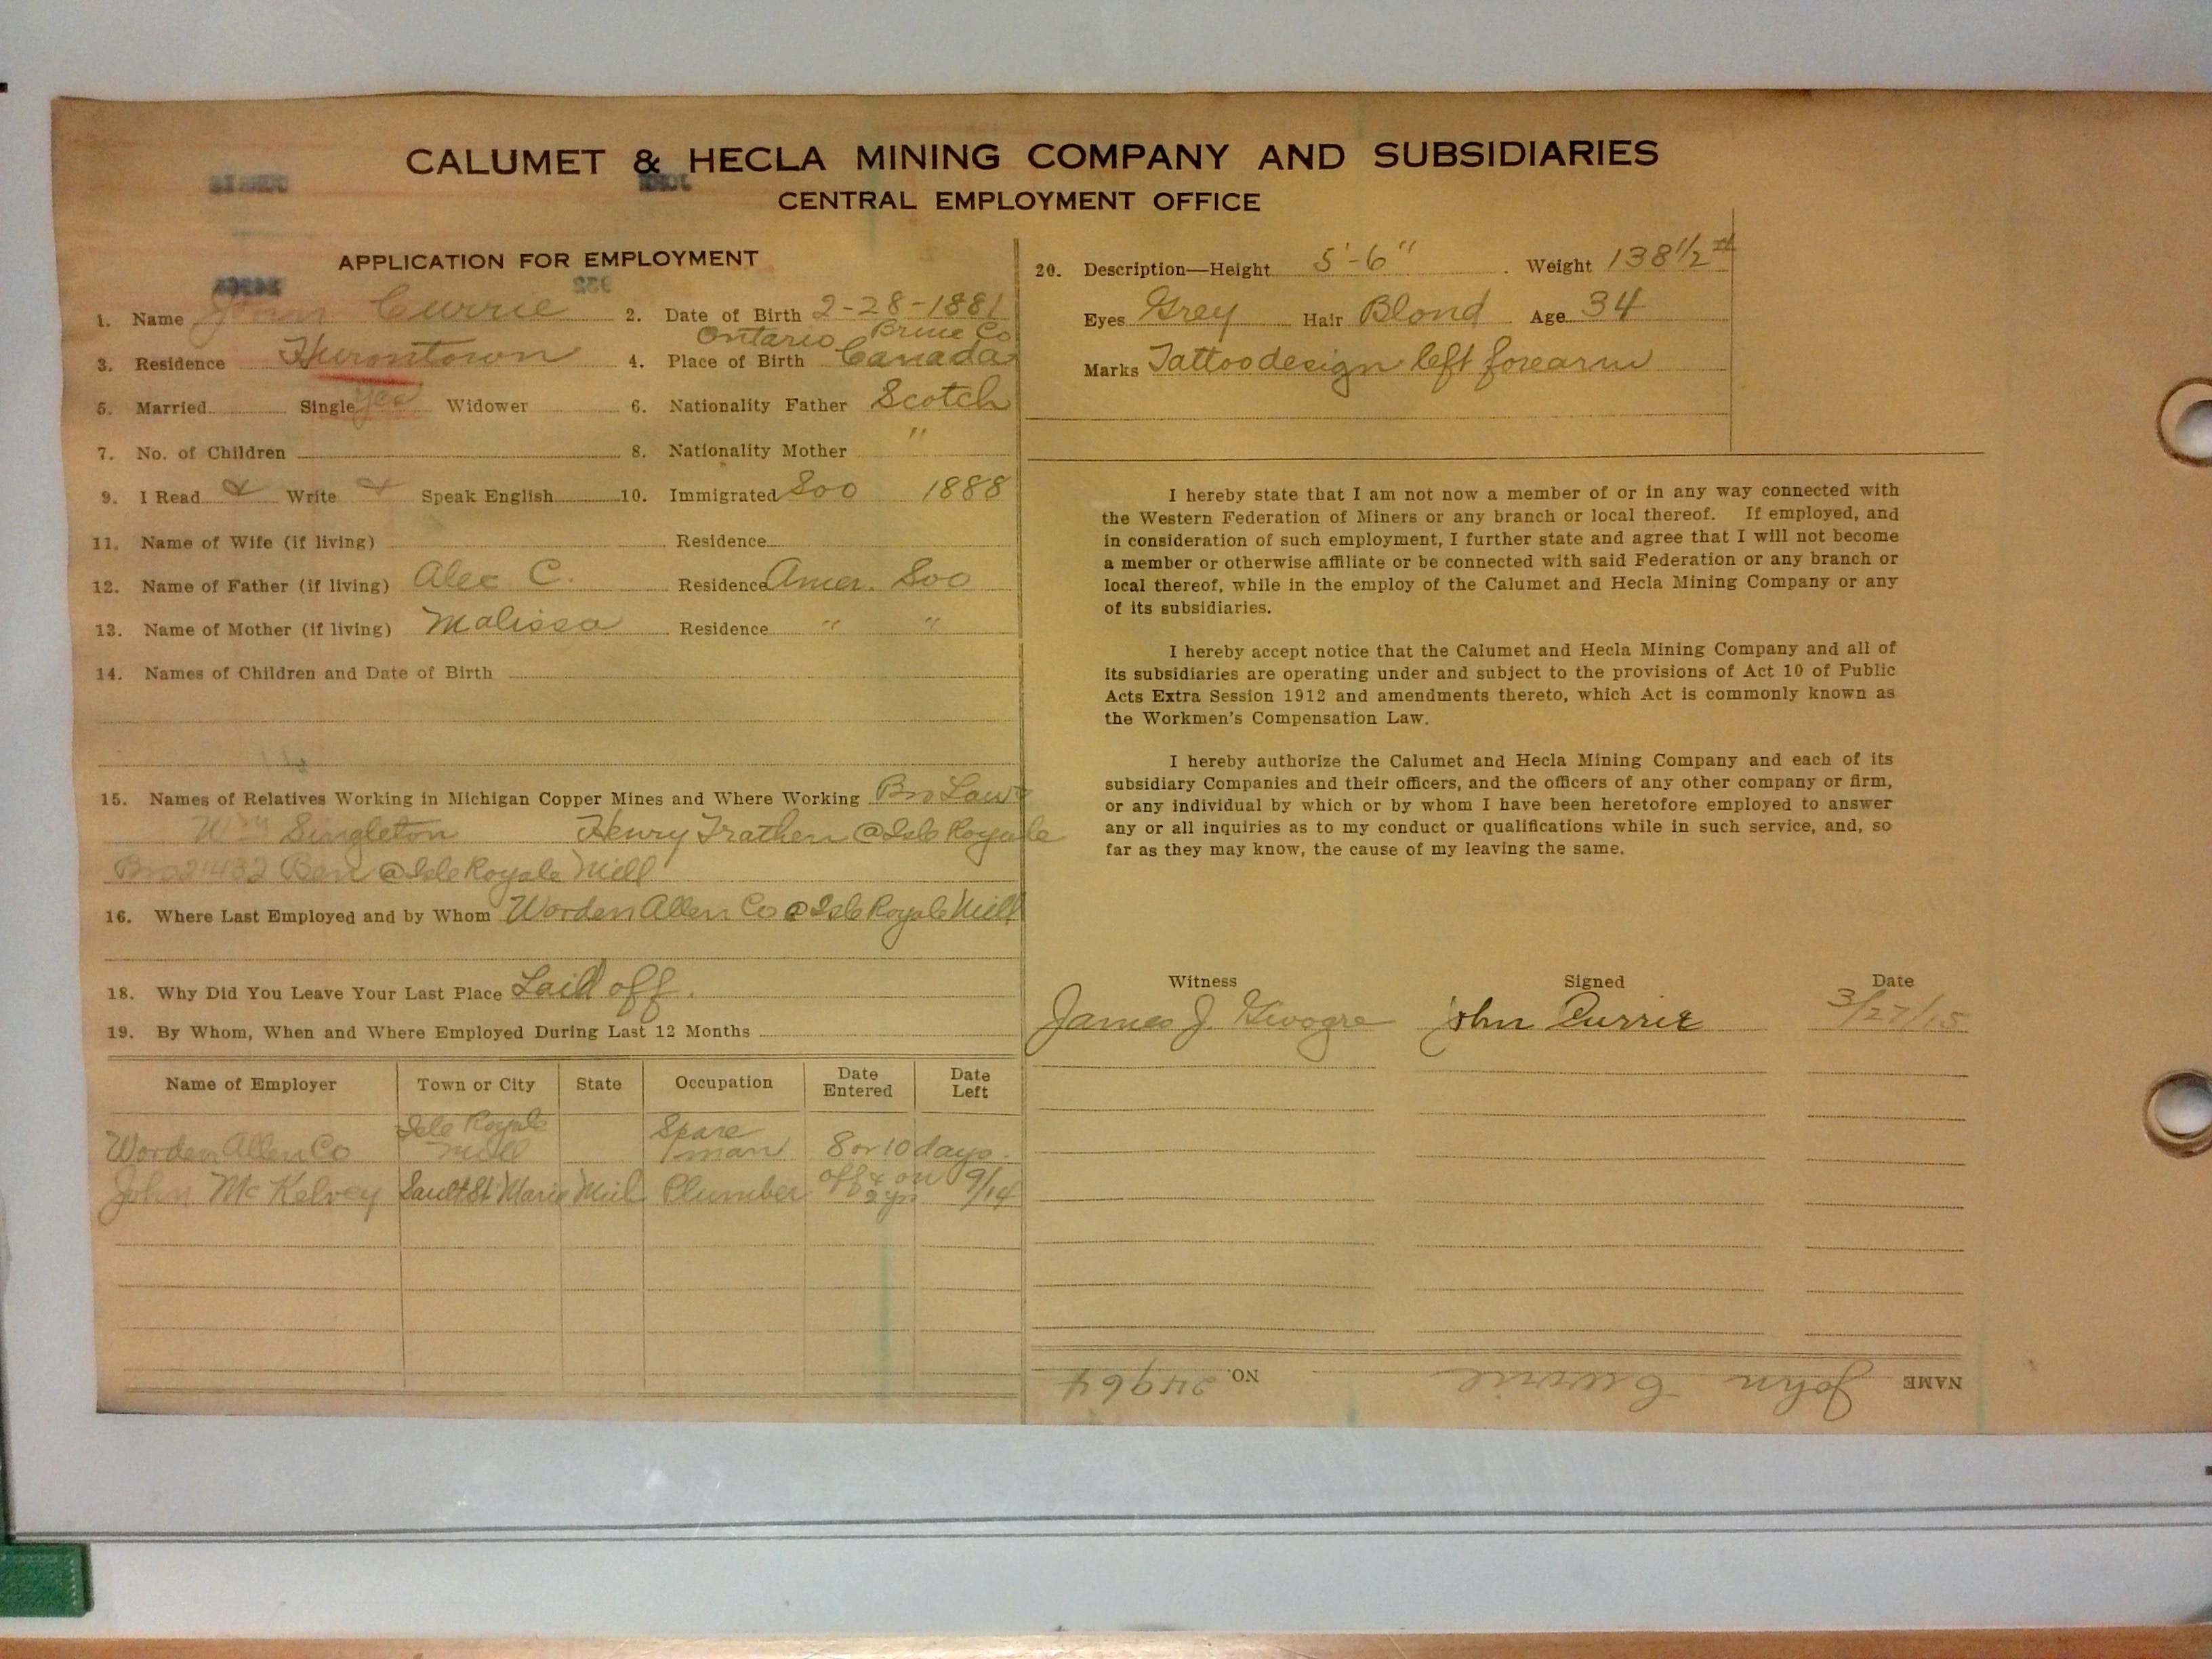 CALUMET & HECLA MINING COMPANY AND SUBSIDIARIES
CENTRAL EMPLOYMENT OFFICE
APPLICATION FOR EMPLOYMENT
1. Name John Currie 2. Date of Birth 2-28-1881
Ontario Bruce Co
3. Residence Hurontown 4. Place of Birth Canada
5. Married Single yes Widower 6. Nationality Father Scotch
7. No. of Children 8. Nationality Mother "
9. I Read & Write & Speak English 10. Immigrated Soo 1888
11. Name of Wife (if living) Residence
12. Name of Father (if living) Alec C. Residence Amer. Soo
13. Name of Mother (if living) Malissa Residence " "
14. Names of Children and Date of Birth
15. Names of Relatives Working in Michigan Copper Mines and Where Working Bro Laws
Wm Singleton Henry Trathen @ Isle Royale
Bro 21432 Ben @ Isle Royale Mill
16. Where Last Employed and by Whom Worden Allen Co @ Isle Royale Mill
18. Why Did You Leave Your Last Place Laid off.
19. By Whom, When and Where Employed During Last 12 Months
Name of Employer Town or City State Occupation Date Entered Date Left
Worden Allen Co Isle Royale Mill Spare man 8 or 10 days.
John McKelvey Sault St Marie Mich Plumber off & on 2 yrs 9/14
20. Description—Height 5'-6" Weight 138 1/2 #
Eyes Grey Hair Blond Age 34
Marks Tattoo design left forearm
I hereby state that I am not now a member of or in any way connected with
the Western Federation of Miners or any branch or local thereof. If employed, and
in consideration of such employment, I further state and agree that I will not become
a member or otherwise affiliate or be connected with said Federation or any branch or
local thereof, while in the employ of the Calumet and Hecla Mining Company or any
of its subsidiaries.
I hereby accept notice that the Calumet and Hecla Mining Company and all of
its subsidiaries are operating under and subject to the provisions of Act 10 of Public
Acts Extra Session 1912 and amendments thereto, which Act is commonly known as
the Workmen's Compensation Law.
I hereby authorize the Calumet and Hecla Mining Company and each of its
subsidiary Companies and their officers, and the officers of any other company or firm,
or any individual by which or by whom I have been heretofore employed to answer
any or all inquiries as to my conduct or qualifications while in such service, and, so
far as they may know, the cause of my leaving the same.
Witness Signed Date
James J. John Currie 3/27/15
NAME John Currie NO. 24964